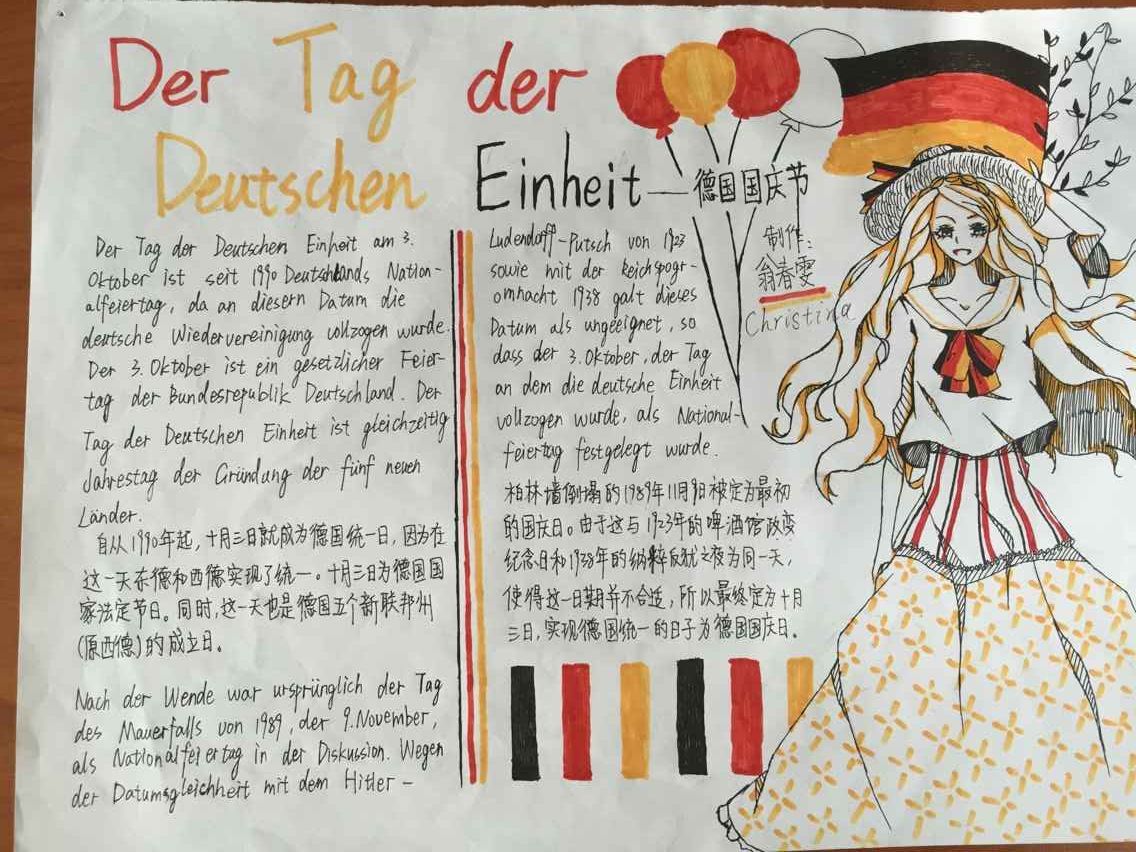 Der Tag der
Deutschen Einheit — 德国国庆节
制作:
翁春雯
Christina
Der Tag der Deutschen Einheit am 3.
Oktober ist seit 1990 Deutschlands Nation-
alfeiertag, da an diesern Datum die
deutsche Wiedervereinigung vollzogen wurde.
Der 3. Oktober ist ein gesetzlicher Feier-
tag der Bundesrepublik Deutschland. Der
Tag der Deutschen Einheit ist gleichzeitig
Jahrestag der Gründung der fünf neuen
Länder.
自从1990年起,十月三日就成为德国统一日,因为在
这一天东德和西德实现了统一。十月三日为德国国
家法定节日。同时,这一天也是德国五个新联邦州
(原西德)的成立日。
Nach der Wende war ursprünglich der Tag
des Mauerfalls von 1989, der 9. November,
als Nationalfeiertag in der Diskussion. Wegen
der Datumsgleichheit mit dem Hitler-
Ludendorff-Putsch von 1923
sowie mit der Reichspogr-
omnacht 1938 galt dieses
Datum als ungeeignet, so
dass der 3. Oktober, der Tag
an dem die deutsche Einheit
vollzogen wurde, als National-
feiertag festgelegt wurde.
柏林墙倒塌的1989年11月9日被定为最初
的国庆日。由于这与1923年的啤酒馆政变
纪念日和1938年的纳粹反犹之夜为同一天,
使得这一日期并不合适,所以最终定为十月
三日,实现德国统一的日子为德国国庆日。